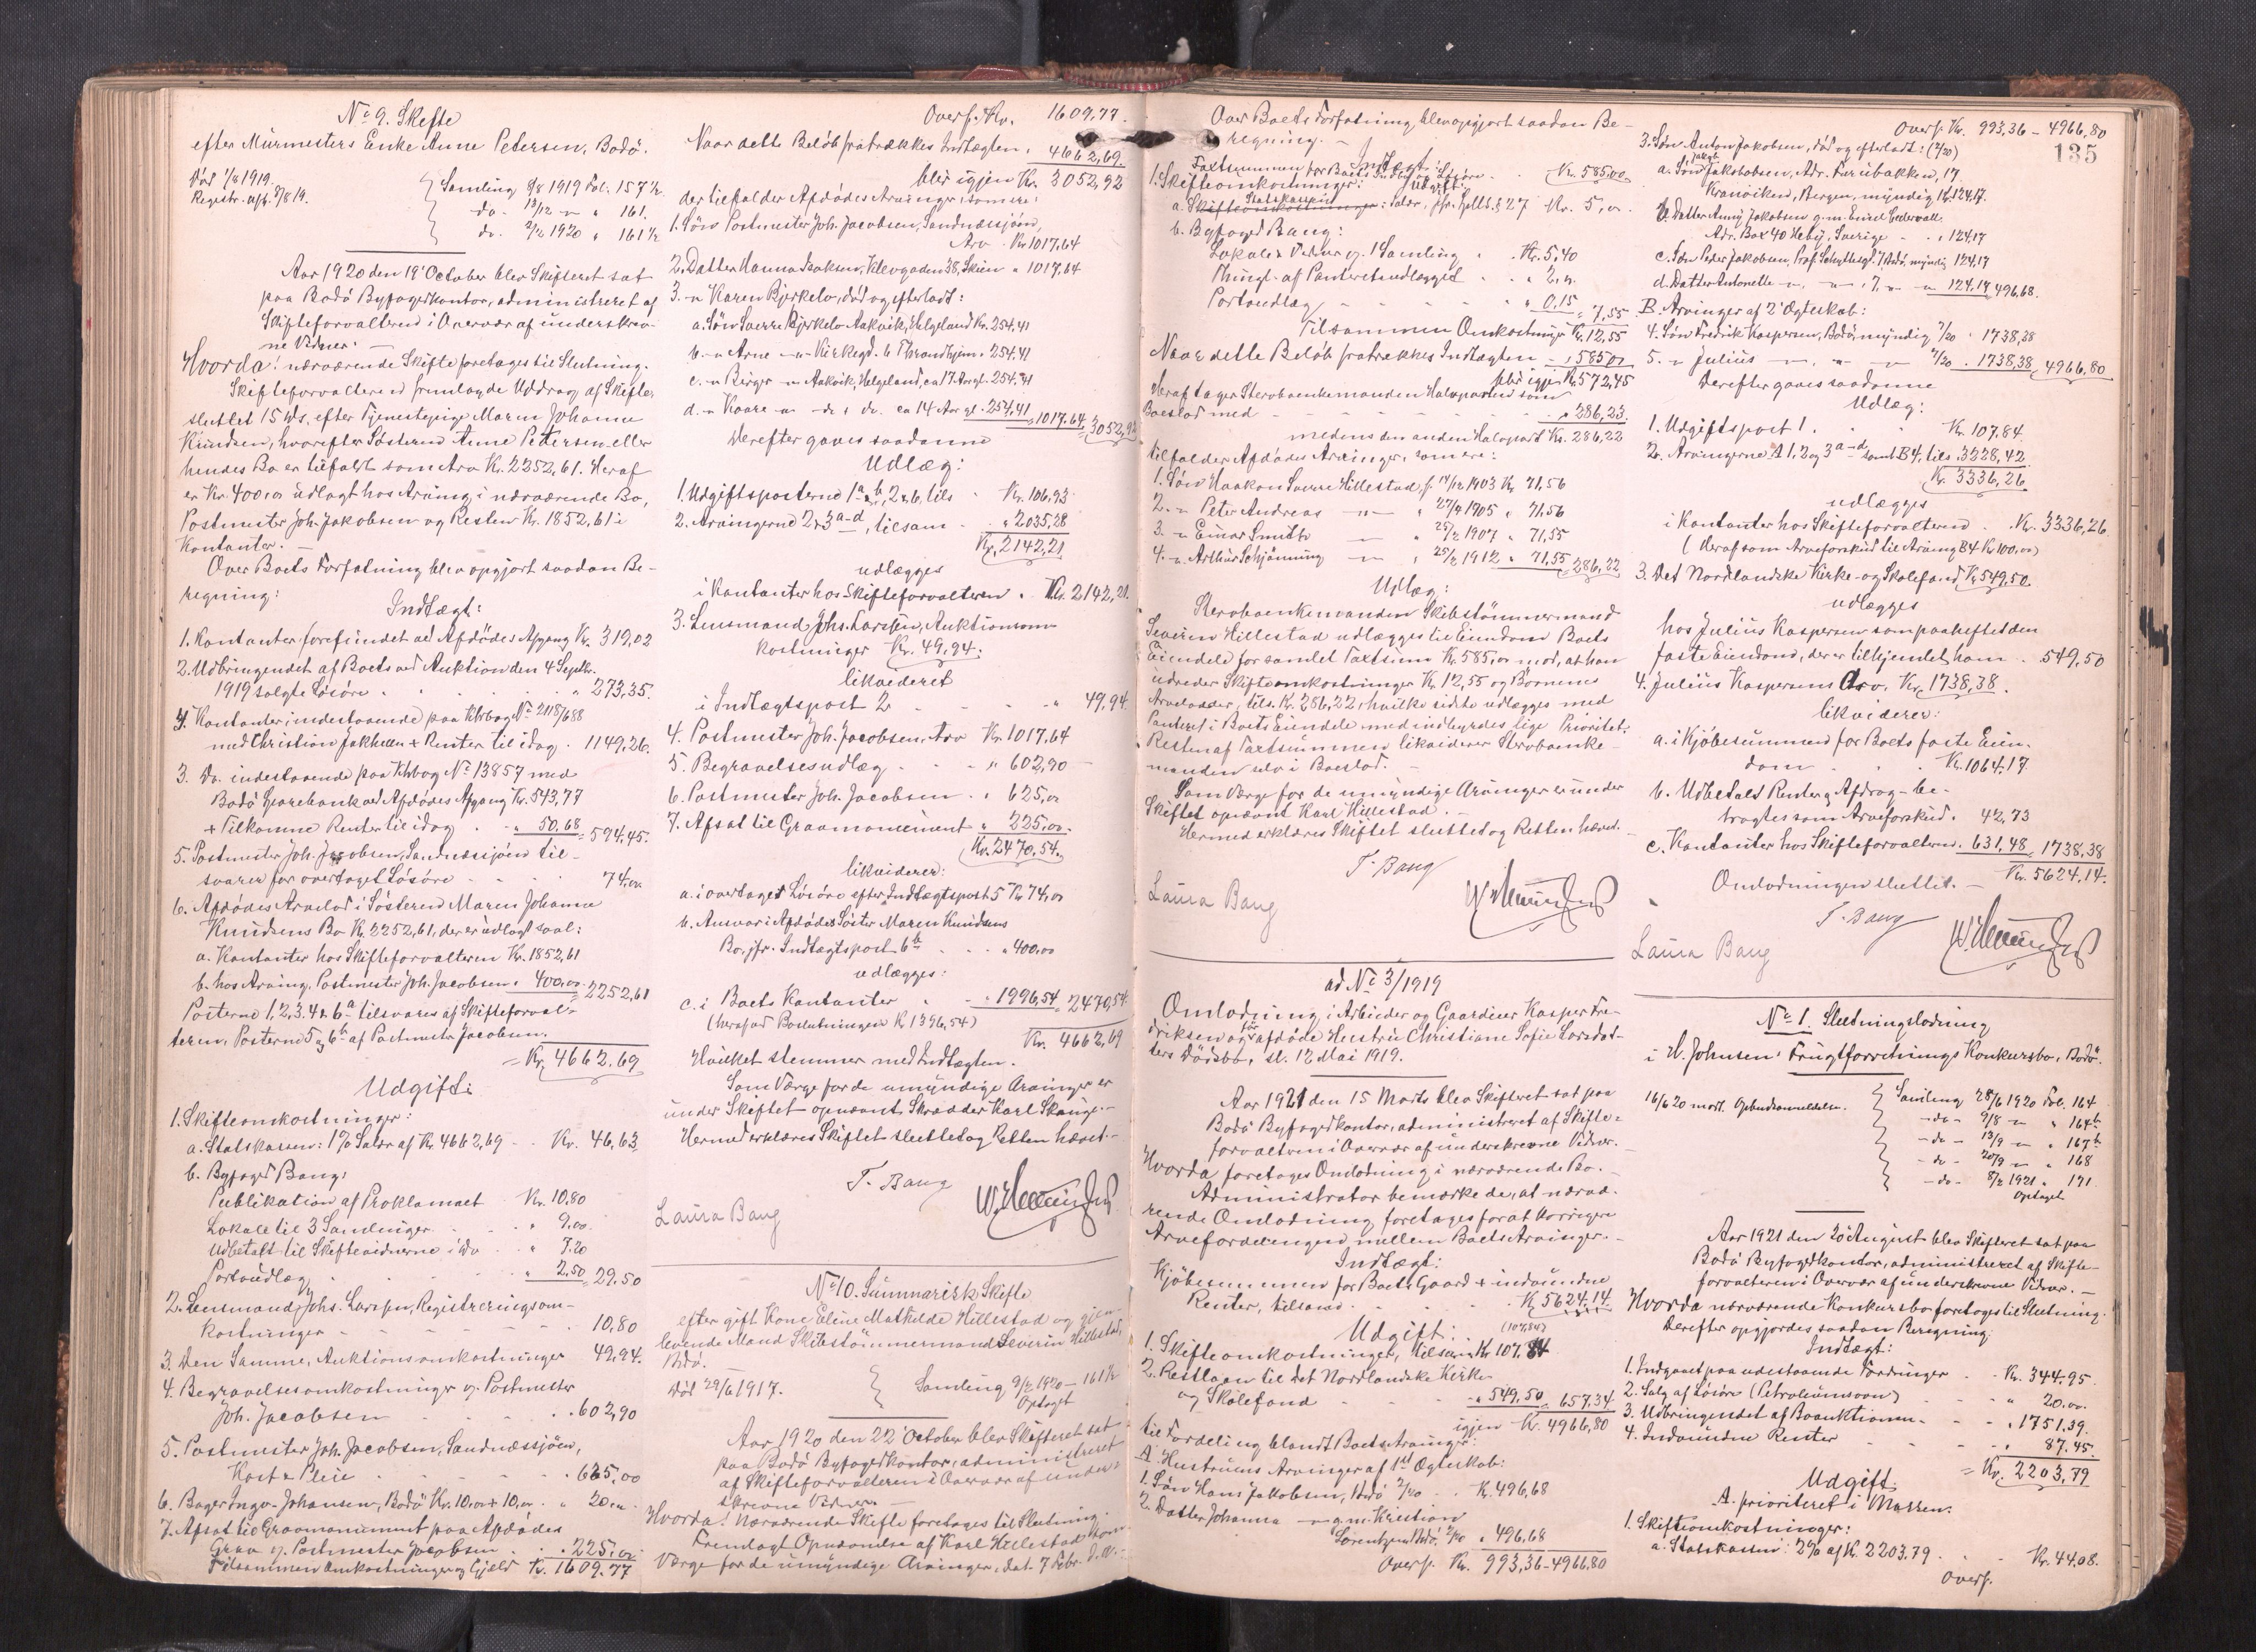 No 9. Skifte
efter Murmesters Enke Anne Petersen, Bodö.
Död 1/8 1919.
Registr. afh. 8/8 19.
Samling 9/8 1919 Fol. 157 1/2
do. 13/12 " " 161.
do. 2/2 1920 " 161 1/2
Aar 1920 den 19 October blev Skifteret sat
paa Bodö Byfogedkontor, administreret af
Skifteforvalteren i Overvær af underskrev-
ne Vidner. —
Hvorda! nærværende Skifte foretages til Slutning.
Skifteforvalteren fremlagde Uddrag af Skifte,
sluttet 15 ds. efter Tjenestepige Maren Johanne
Knudsen, hvorefter Søsteren Anne Petersen eller
hendes Bo er tilfaldt som Arv Kr. 2252,61. Heraf
er Kr. 400,00 udlagt hos Arving i nærværende Bo,
Postmester Joh. Jakobsen og Resten Kr. 1852,61 i
Kontanter. —
Over Boets Forfatning blev opgjort saadan Be-
regning:
Indtægt:
1. Kontanter forefundet ved Afdödes Afgang Kr. 319,02
2. Udbringendet af Boets ved Auktion den 4 Septbr.
1919 solgte Lösöre . . . " 273,35.
4. Kontanter indestaaende paa Ktrbog No 2118/688
med Christian Jakhelln + Renter til idag . 1149,26.
3. Do. indestaaende paa Ktrbog No 13857 med
Bodö Sparebank ved Afdödes Afgang Kr. 543,77
+ Tilkomne Renter til idag . " 50.68 = 594,45.
5. Postmester Joh. Jacobsen, Sandnæssjöen til-
svarer for overtaget Lösöre . . . 74,00
6. Afdödes Arvelod i Søsteren Maren Johanne
Knudsens Bo Kr. 2252,61, der er udlagt saal:
a. Kontanter hos Skifteforvalteren Kr. 1852,61
b. hos Arving, Postmester Joh. Jacobsen " 400,00 = 2252,61
Posterne 1, 2, 3. 4 & 6a tilsvares af Skifteforval-
teren, Posterne 5 og 6b af Postmester Jacobsen.
= Kr. 4662.69
Udgift:
1. Skifteomkostninger:
a. Statskassen: 1% Salær af Kr. 4662,69 . . Kr. 46,63
b. Byfoged Bang:
Publikation af Proklamaet Kr. 10,80
Lokale til 3 Samlinger . . " 9,00.
Udbetalt til Skiftevidnerne i do . " 7.20
Portoudlæg . . . " 2,50 = 29.50
2. Lensmand Johs. Larssen, Registreringsom-
kostninger . . . 10,80
3. Den Samme, Auktionsomkostninger 49,94.
4. Begravelsesomkostninger v. Postmester
Joh. Jacobsen . . . 602,90
5. Postmester Joh. Jacobsen, Sandnæssjöen,
Kost & Pleie . . . 625,00
6. Bager Ingv. Johansen, Bodö Kr. 10,00 + 10,00 . " 20,00.
7. Afsat til Gravmonument paa Afdödes
Grav v. Postmester Jacobsen . . . 225,00
Tilsammen Omkostninger og Gjæld Kr. 1609.77
Overf. Kr. 1609,77.
Naar dette Belöb fratrækkes Indtægten . 4662,69.
bliver igjen Kr. 3052,92
der tilfalder Afdödes Arvinger, som ere:
1. Sön Postmester Joh. Jacobsen, Sandnæssjöen,
Arv . Kr. 1017,64
2. Datter Hanna Isaksen, Klevgaden 38, Skien " 1017,64
3. " Karen Bjerkelo, död og efterladt:
a. Sön Sverre Bjerkelo Aakvik, Helgeland Kr. 254,41
b. " Arne " Kirkegd. 6 Throndhjem " 254,41
c. " Birger " Aakvik, Helgeland, ca 17 Aar gl. " 254,41
d. " Kaare " do , do. ca 14 Aar gl. 254,41 = 1017.64 = 3052,92
Derefter gaves saadanne
Udlæg:
1. Udgiftsposterne 1a & b, 2 & 6, tils . Kr. 106,93
2. Arvingerne 2 & 3 a-d, tilsam . . " 2035,28
Kr. 2142,21
udlægges
i Kontanter hos Skifteforvalteren . Kr. 2142,21.
3. Lensmand Johs. Larssen, Auktionsom-
kostninger Kr. 49,94.
likvideret
i Indtægtspost 2 . . . " 49,94.
4. Postmester Joh. Jacobsen, Arv Kr. 1017,64
5. Begravelsesudlæg . . " 602,90
6. Postmester Joh. Jacobsen . . 625,00
7. Afsat til Gravmonument " 225,00.
Kr. 2470,54.
likviderer:
a. i overtaget Lösöre efter Indtægtspost 5 Kr. 74,00
b. Ansvar i Afdödes Söster Maren Knudsens
Bo, jfr. Indtægtspost 6b . . . " 400,00
udlægges:
c. i Boets Kontanter . . " 1996,54 = 2470,54
(heraf ved Boslutningen Kr. 1396,54)
Kr. 4662,69
Hvilket stemmer med Indtægten.
Som Værge for de umyndige Arvinger er
under Skiftet opnævnt Skrædder Karl Skauge. —
Hermed erklæres Skiftet sluttet og Retten hævet. —
T. Bang
Laura Bang
No 10. Summarisk Skifte
efter gift Kone Eline Mathilde Hillestad og gjen-
levende Mand Skibstömmermand Severin Hillestad,
Bdö.
Död 29/6 1917.
Samling 9/2 1920 — 161 1/2
Optaget
Aar 1920 den 22 October blev Skifteret sat
paa Bodö Byfogedkontor, administreret
af Skifteforvalteren i Overvær af under-
skrevne Vidner. —
Hvorda! Nærværende Skifte foretages til Slutning.
Fremlagt Opnævnelse af Karl Hillestad som
Værge for de umyndige Arvinger, dat. 7 Febr. d. A. —
Over Boets Forfatning blev opgjort saadan Be-
regning. —
Indtægt:
Taxtsummen for Boets Indbo og Lösöre . . Kr. 585,00
Udgift:
1. Skifteomkostninger:
a. Statskassen: Salær, jfr. Spll. § 27 Kr. 5,00.
b. Byfoged Bang:
Lokale & Vidner v. 1 Samling . Kr. 5,40
Thingl. af Panteretsudlægget . . 2,00
Portoudlæg . . . " 0,15 = 7,55
Tilsammen Omkostninger Kr. 12,55
Naar dette Belöb fratrækkes Indtægten . " 585,00
bliver igjen Kr. 572,45
Heraf tager Sterboenkemanden Halvparten som
Boeslod med . . . " 286,23.
medens den anden Halvpart Kr. 286,22
tilfalder Afdödes Arvinger, som ere:
1. Sön Haakon Sverre Hillestad f. 14/12 1903 Kr. 71,56
2. " Peter Andreas " " 27/9 1905 " 71,56
3. " Einar Smith " " 25/2 1907 " 71,55
4. " Arthur Schjönning " " 25/2 1912 " 71,55 = 286,22
Udlæg:
Sterboenkemanden Skibstömmermand
Severin Hillestad udlægges til Eiendom Boets
Eiendele for samlet Taxtsum Kr. 585,00 mod, at han
udreder Skifteomkostninger Kr. 12,55 og Börnenes
Arvelodder, tils. Kr. 286,22, hvilke sidste udlægges med
Panteret i Boets Eiendele med indbyrdes lige Prioritet.
Resten af Taxtsummen likviderer Sterboenke-
manden selv i Boeslod. —
Som Værge for de umyndige Arvinger er under
Skiftet opnævnt Karl Hillestad. —
Hermed erklæres Skiftet sluttet og Retten hævet. —
T. Bang
Laura Bang
ad No 3/1919
Omlodning i Arbieder og Gaardeier Kasper Fre-
driksen og för afdöde Hustru Christiane Sofie Larsdat-
ters Dödsbo, sl. 12 Mai 1919.
Aar 1921 den 15 Marts blev Skifteret sat paa
Bodö Byfogedkontor, administreret af Skifte-
forvalteren i Overvær af underskrevne Vidner. —
Hvorda foretages Omlodning i nærværende Bo. —
Administrator bemærkede, at nærvæ-
rende Omlodning foretages for at korrigere
Arvefordelingen mellem Boets Arvinger. —
Indtægt:
Kjöbesummen for Boets Gaard + indvundne
Renter, tilsam . . . Kr. 5624,14
Udgift:
(107,84)
1. Skifteomkostninger, tilsam Kr. 107,84
2. Restlaan til det Nordlandske Kirke-
og Skolefond . . " 549,50 = 657,34
igjen Kr. 4966,80
til Fordeling blandt Boets Arvinger:
A. Hustruens Arvinger af 1ste Ægteskab:
1. Sön Hans Jakobsen, Bodö 7/20 . . Kr. 496,68
2. Datter Johanna " g.m. Kristian
Sörentzen Bodö, 7/20 " 496,68
Overf. Kr. 993,36 — 4966,80
Overf. Kr. 993,36 — 4966,80
135
3. Sön Anton Jakobsen, död og efterladt: (7/20)
a. Sön Jakob Jakobsen, Adr. Furubakken, 17
Kronviken, Bergen, myndig Kr. 124,17.
b. Datter Anny Jakobsen g.m. Emil Cedervall.
Adr. Box 40 Heby, Sverige . . " 124,17
c. Sön Peder Jakobsen, Prof. Schyttesgt. 7, Bodö, myndig 124,17
d. Datter Antonette " " 7, " " 124.17 496,68.
B. Arvinger af 2' Ægteskab:
4. Sön Fredrik Kaspersen, Bodö, myndig 7/20 . 1738,38
5. " Julius " " " 7/20 . 1738,38 = 4966,80
Derefter gaves saadanne
Udlæg:
1. Udgiftspost 1 . . . Kr. 107,84.
2. Arvingerne A 1, 2 og 3 a-d samt B 4, tils . 3228,42.
Kr. 3336,26
udlægges
i Kontanter hos Skifteforvalteren . Kr. 3336,26.
(Heraf som Arveforskud til Arving B4 Kr. 100,00)
3. Det Nordlandske Kirke- og Skolefond Kr. 549,50.
udlægges
hos Julius Kaspersen som paaheftet den
faste Eiendom, der er tilkjendet ham . 549,50
4. Julius Kaspersens Arv, Kr. 1738,38.
likviderer:
a. i Kjöbesummen for Boets faste Eien-
dom . . . Kr. 1064.17
b. Udbetalt Renter & Afdrag — be-
tragtes som Arveforskud . 42,73
c. Kontanter hos Skifteforvalteren . 631,48 = 1738,38
Kr. 5624,14.
Omlodningen sluttet. —
T. Bang
Laura Bang
No 1. Slutningslodning
i H. Johnsens Frugtforretnings Konkursbo, Bodö.
16/6 20 mort. Opbudsanmeldelsen.
Samling 28/6 1920 Fol. 164
— do — 9/8 — " 164b
— do — 13/9 — " 167b
— do — 20/9 — " 168
— do — 8/2 1921 " 171
Optaget
Aar 1921 den 20 August blev Skifteret sat paa
Bodö Byfogedkontor, administreret af Skifte-
forvalteren i Overvær af underskrevne Vidner. —
Hvorda nærværende Konkursbo foretages til Slutning.
Derefter opgjordes saadan Beregning:
Indtægt:
1. Indgaaet paa udestaaende Fordringer . . Kr. 344,95.
2. Salg af Lösöre (Petroleumsovn) . . " 20,00.
3. Udbringendet af Boauktionen . . . 1751,39.
4. Indvundne Renter . . . 87.45
= Kr. 2203,79
Udgift
A. prioriteret i Massen:
1. Skifteomkostninger:
a. Statskassen: 2% af Kr. 2203,79 . . Kr. 44,08.
Overf.